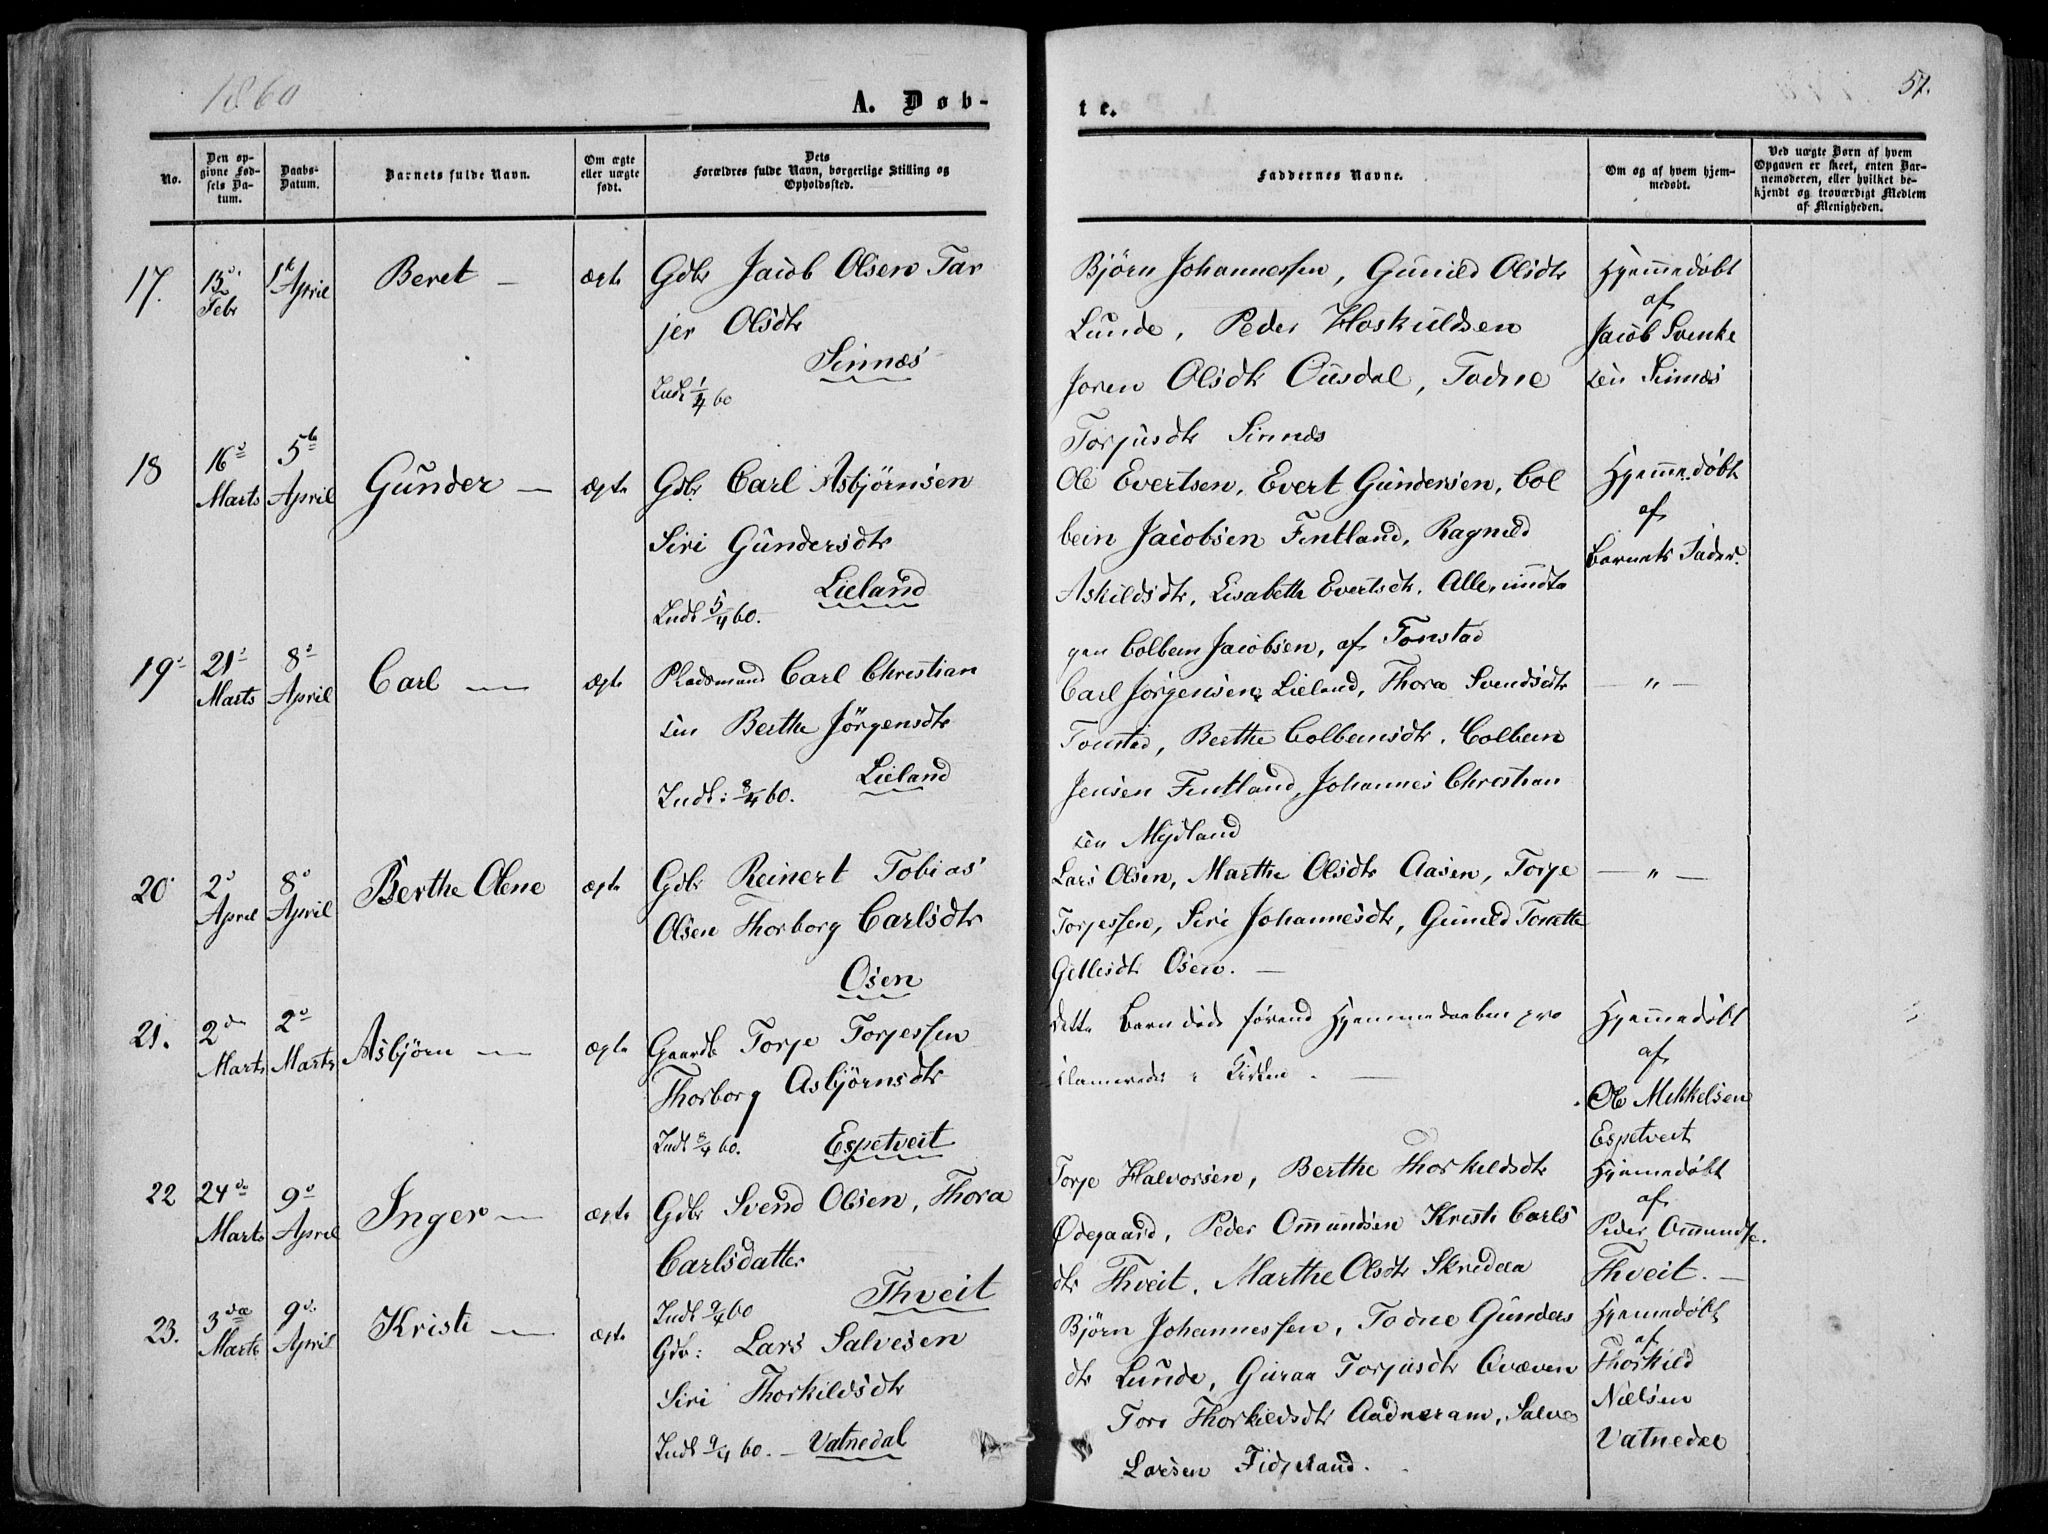 1860
A. Døb-
te.
57.
No.
Den opgivne Fødsels Datum.
Daabs-Datum.
Barnets fulde Navn.
Om ægte eller uægte født.
Dets Forældres fulde Navn, borgerlige Stilling og Opholdssted.
Faddernes Navne.
Om og af hvem hjemmedøbt.
Ved uægte Børn af hvem Opgaven er skeet, enten Barnemoderen, eller hvilket bekjendt og troværdigt Medlem af Menigheden.
17. 13de Febr 1te April Beret — ægte
Gdbr Jacob Olsen Tar
jer Olsdtr
Sinnæs
Indt 1/4 60
Bjørn Johannessen, Gunild Olsdtr
Lunde, Peder Hoskuldsen
Joren Olsdtr Ousdal, Todne
Torjusdtr Sinnæs
Hjemmedøbt
af
Jacob Svenke
sen Sinnæs
18 16de Marts 5te April Gunder — ægte
Gdbr Carl Asbjørnsen
Siri Gundersdtr
Lieland
Indt 5/4 60.
Ole Evertsen, Evert Gundersen, Col
bein Jacobsen Fintland, Ragnild
Askildsdtr, Lisabeth Evertsdtr. Alle, undta
gen Colbein Jacobsen, af Tonstad
Hjemmedøbt
af
Barnets Fader.
19 21 Marts 8 April Carl — ægte
Pladsmand Carl Christian
sen Berthe Jörgensdtr
Lieland
Indt: 8/4 60.
Carl Jörgensen Lieland, Thora Svendsdtr
Tonstad, Berthe Colbeinsdtr. Colbein
Jensen Fintland, Johannes Christian
sen Mydland
— " —
20 2 April 8 April Berthe Olene ægte
Gdbr Reinert Tobias
Olsen Thorborg Carlsdtr
Osen
Lars Olsen, Marthe Olsdtr Aasen, Torje
Torjessen, Siri Johannesdtr, Gunild Tonette
Gitlesdtr Osen. —
— " —
21. 2de Marts 2 Marts Asbjørn — ægte
Gaardbr Torje Torjessen
Thorborg Asbjörnsdtr
Indt 8/4 60. Espetveit
dette Barn døde førend Hjemmedaaben pro
klameredes i Kirken. —
Hjemmedøbt
af
Ole Mikkelsen
Espetveit
22 24de Marts 9 April Inger — ægte
Gdbr Svend Olsen, Thora
Carlsdatter
Thveit
Indt 9/4 60
Torje Halvorsen, Berthe Thorkildsdtr
Ødegaard, Peder Ommundsen Kristi Carls
dtr Thveit. Marthe Olsdtr Skredaa
Hjemmedøbt
af
Peder Ommundse.
Thveit. —
23. 3de Marts 9 April Kristi — ægte
Gdbr: Lars Salvesen
Siri Thorkildsdtr
Indt 9/4 60. — Vatnedal
Bjørn Johannessen, Todne Gunders
dtr Lunde, Guraa Torjusdtr Qvæven
Tore Thorkildsdtr Aadneram, Salve
Larsen Fidjeland.
Hjemmedøbt
af
Thorkild
Nielsen
Vatnedal